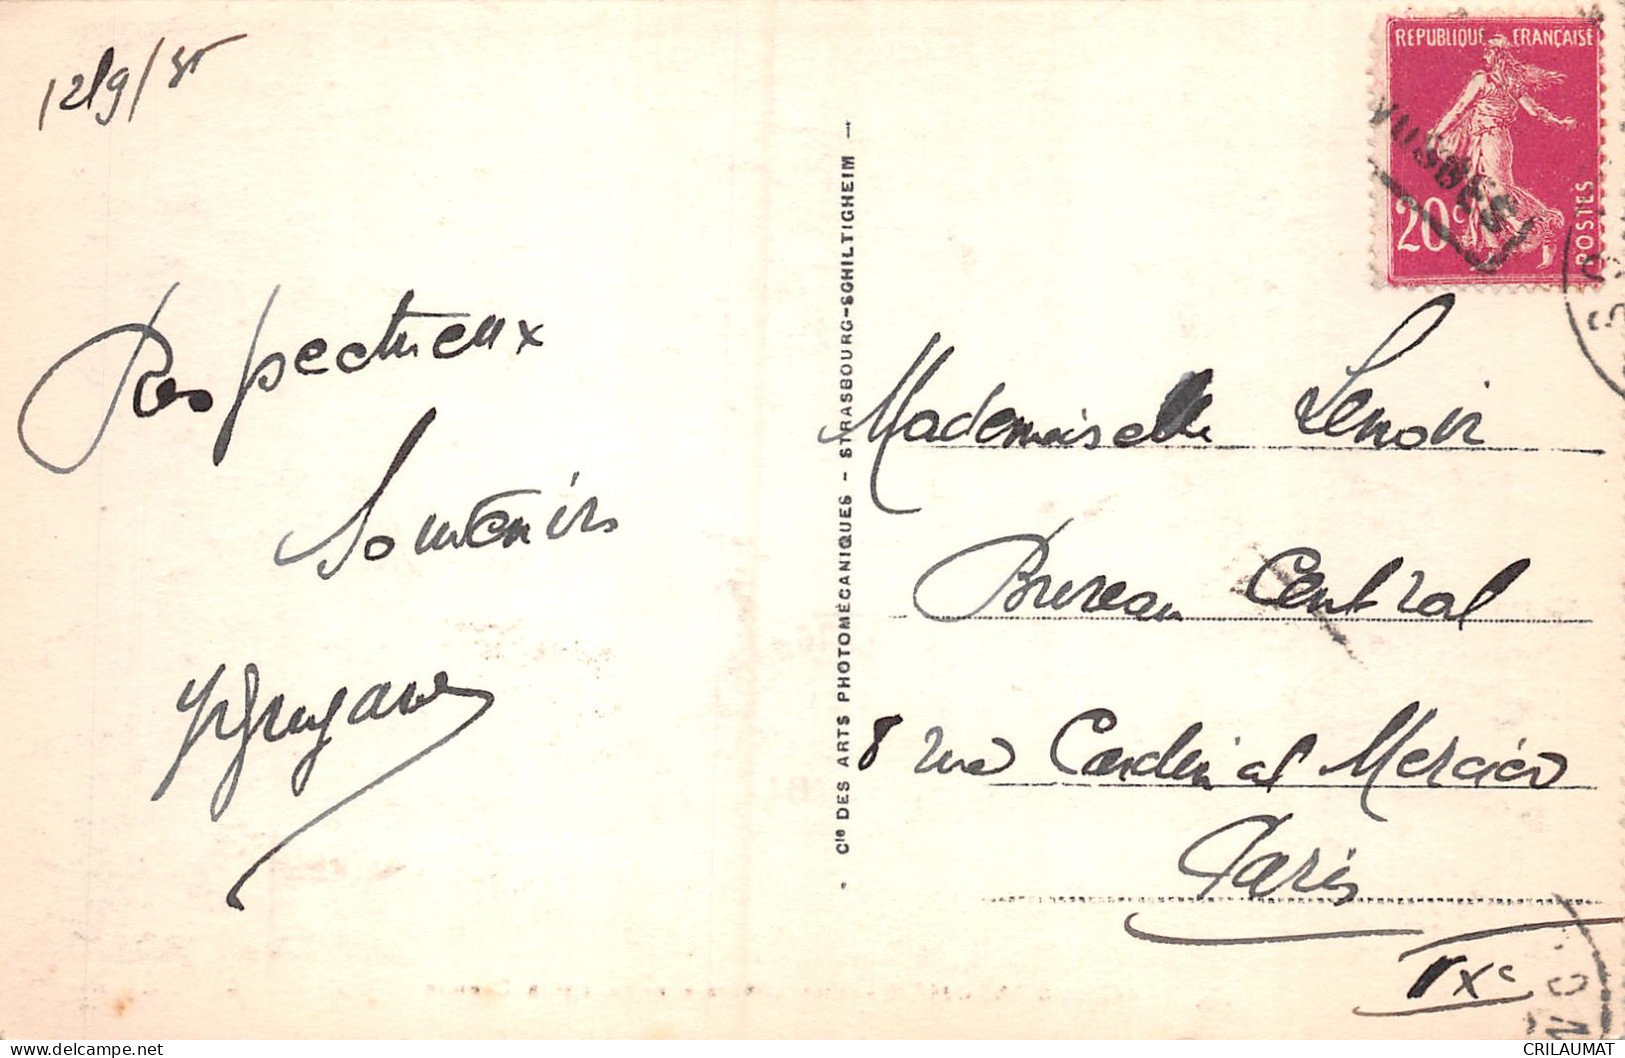 12/9/35
Respectueux
Souvenirs
REPUBLIQUE FRANÇAISE
20c
POSTES
VOSGES
- Cie DES ARTS PHOTOMÉCANIQUES - STRASBOURG-SCHILTIGHEIM -
Mademoiselle Lenoir
Bureau Central
8 rue Cardinal Mercier
Paris
IXe
CRILAUMAT